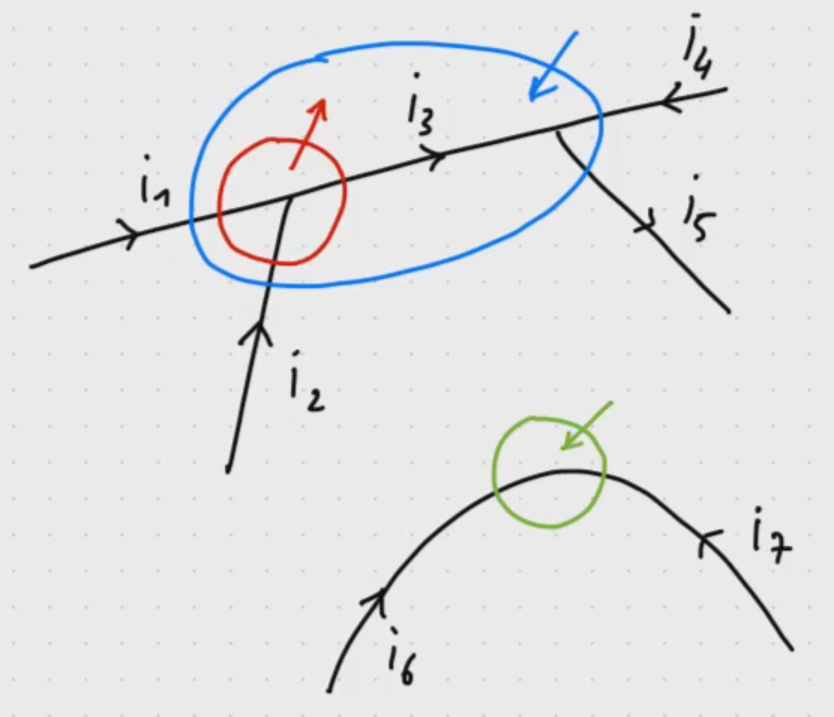 i4
i3
i1
i5
i2
i7
i6